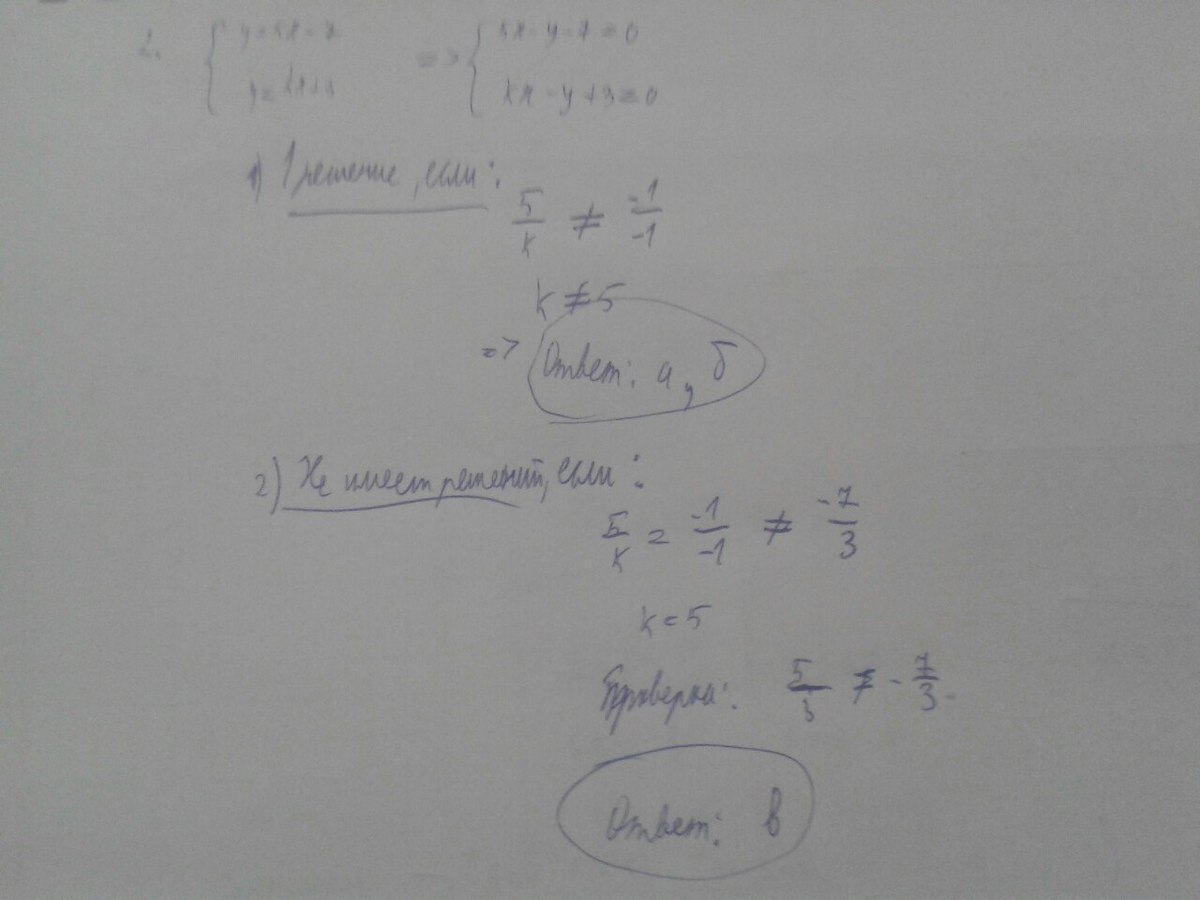 2. { y=5x-7 => { 5x-y-7=0
y=kx+3 kx-y+3=0
1) 1 решение, если:
5/k ≠ -1/-1
k≠5
=> Ответ: а, б
2) Не имеет решений, если:
5/k = -1/-1 ≠ -7/3
k=5
Проверка: 5/3 ≠ -7/3.
Ответ: в